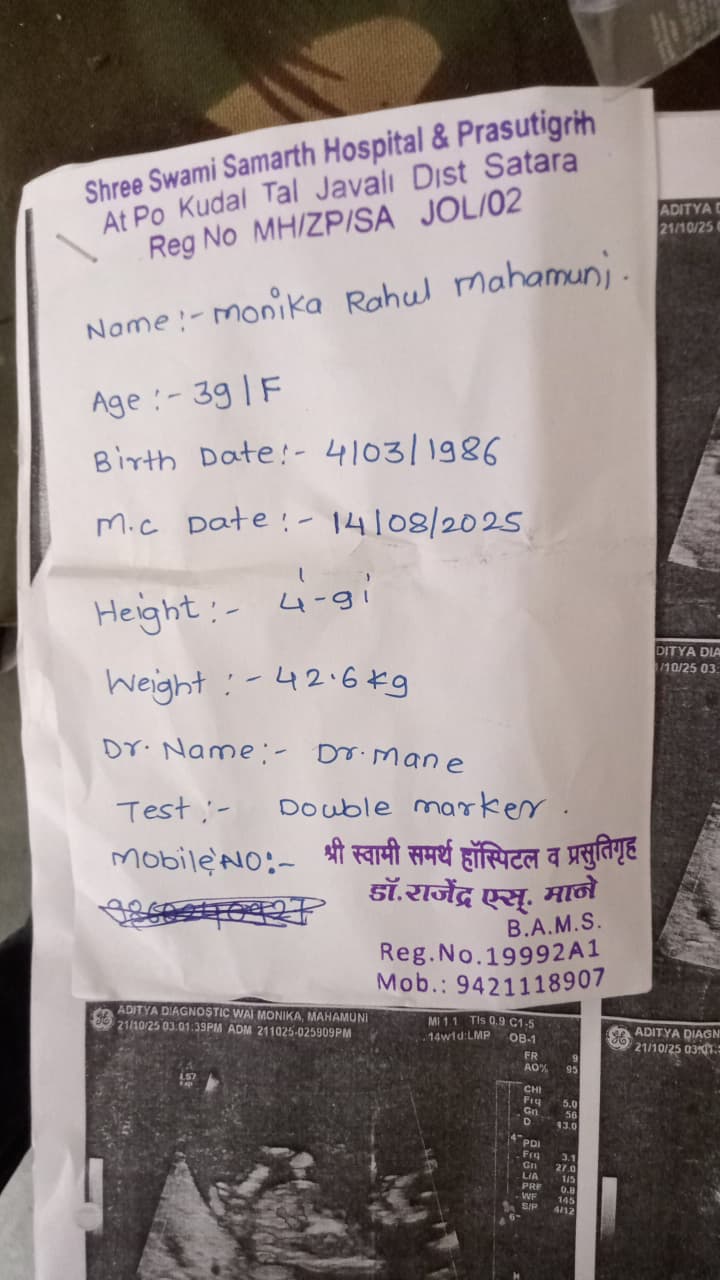 Shree Swami Samarth Hospital & Prasutigrih
At Po Kudal Tal Javali Dist Satara
Reg No MH/ZP/SA JOL/02
Name :- Monika Rahul Mahamuni.
Age :- 39/F
Birth Date :- 4/03/1986
M.C Date :- 14/08/2025
Height :- 4'-9i
Weight :- 42.6 kg
Dr. Name :- Dr. Mane
Test :- Double marker.
Mobile NO :-
श्री स्वामी समर्थ हॉस्पिटल व प्रसुतिगृह
डॉ. राजेंद्र एस्. माने
B.A.M.S.
Reg.No.19992A1
Mob.: 9421118907
ADITYA D
21/10/25
DITYA DIA
/10/25 03:
ADITYA DIAGNOSTIC WAI MONIKA, MAHAMUNI
21/10/25 03:01:39PM ADM 211025-025909PM
MI 1.1 TIs 0.9 C1-5
14w1d:LMP OB-1
FR 9
AO% 95
CHI
Frq 5.0
Gn 56
D 13.0
PDI
Frq 3.1
Gn 27.0
L/A 1/5
PRF 0.8
WF 145
S/P 4/12
4
6
ADITYA DIAGN
21/10/25 03:01: